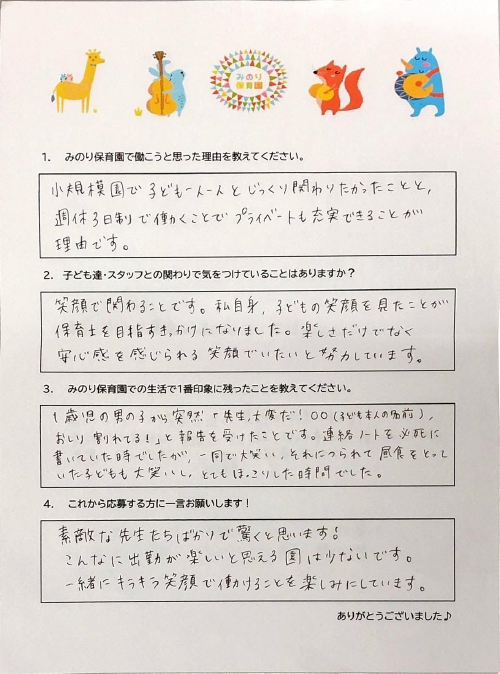 みのり
保育園
1. みのり保育園で働こうと思った理由を教えてください。
小規模園で子ども一人一人とじっくり関わりたかったことと、
週休3日制で働くことでプライベートも充実できることが
理由です。
2. 子ども達・スタッフとの関わりで気をつけていることはありますか？
笑顔で関わることです。私自身、子どもの笑顔を見たことが
保育士を目指すきっかけになりました。楽しさだけでなく
安心感を感じられる笑顔でいたいと努力しています。
3. みのり保育園での生活で1番印象に残ったことを教えてください。
1歳児の男の子から突然「先生大変だ！〇〇(子ども本人の名前)、
おしり割れてる！」と報告を受けたことです。連絡ノートを必死に
書いていた時でしたが、一同で大笑い。それにつられて昼食をとって
いた子どもも大笑いし、とてもほっこりした時間でした。
4. これから応募する方に一言お願いします！
素敵な先生たちばかりで驚くと思います！
こんなに出勤が楽しいと思える園は少ないです。
一緒にキラキラ笑顔で働けることを楽しみにしています。
ありがとうございました♪